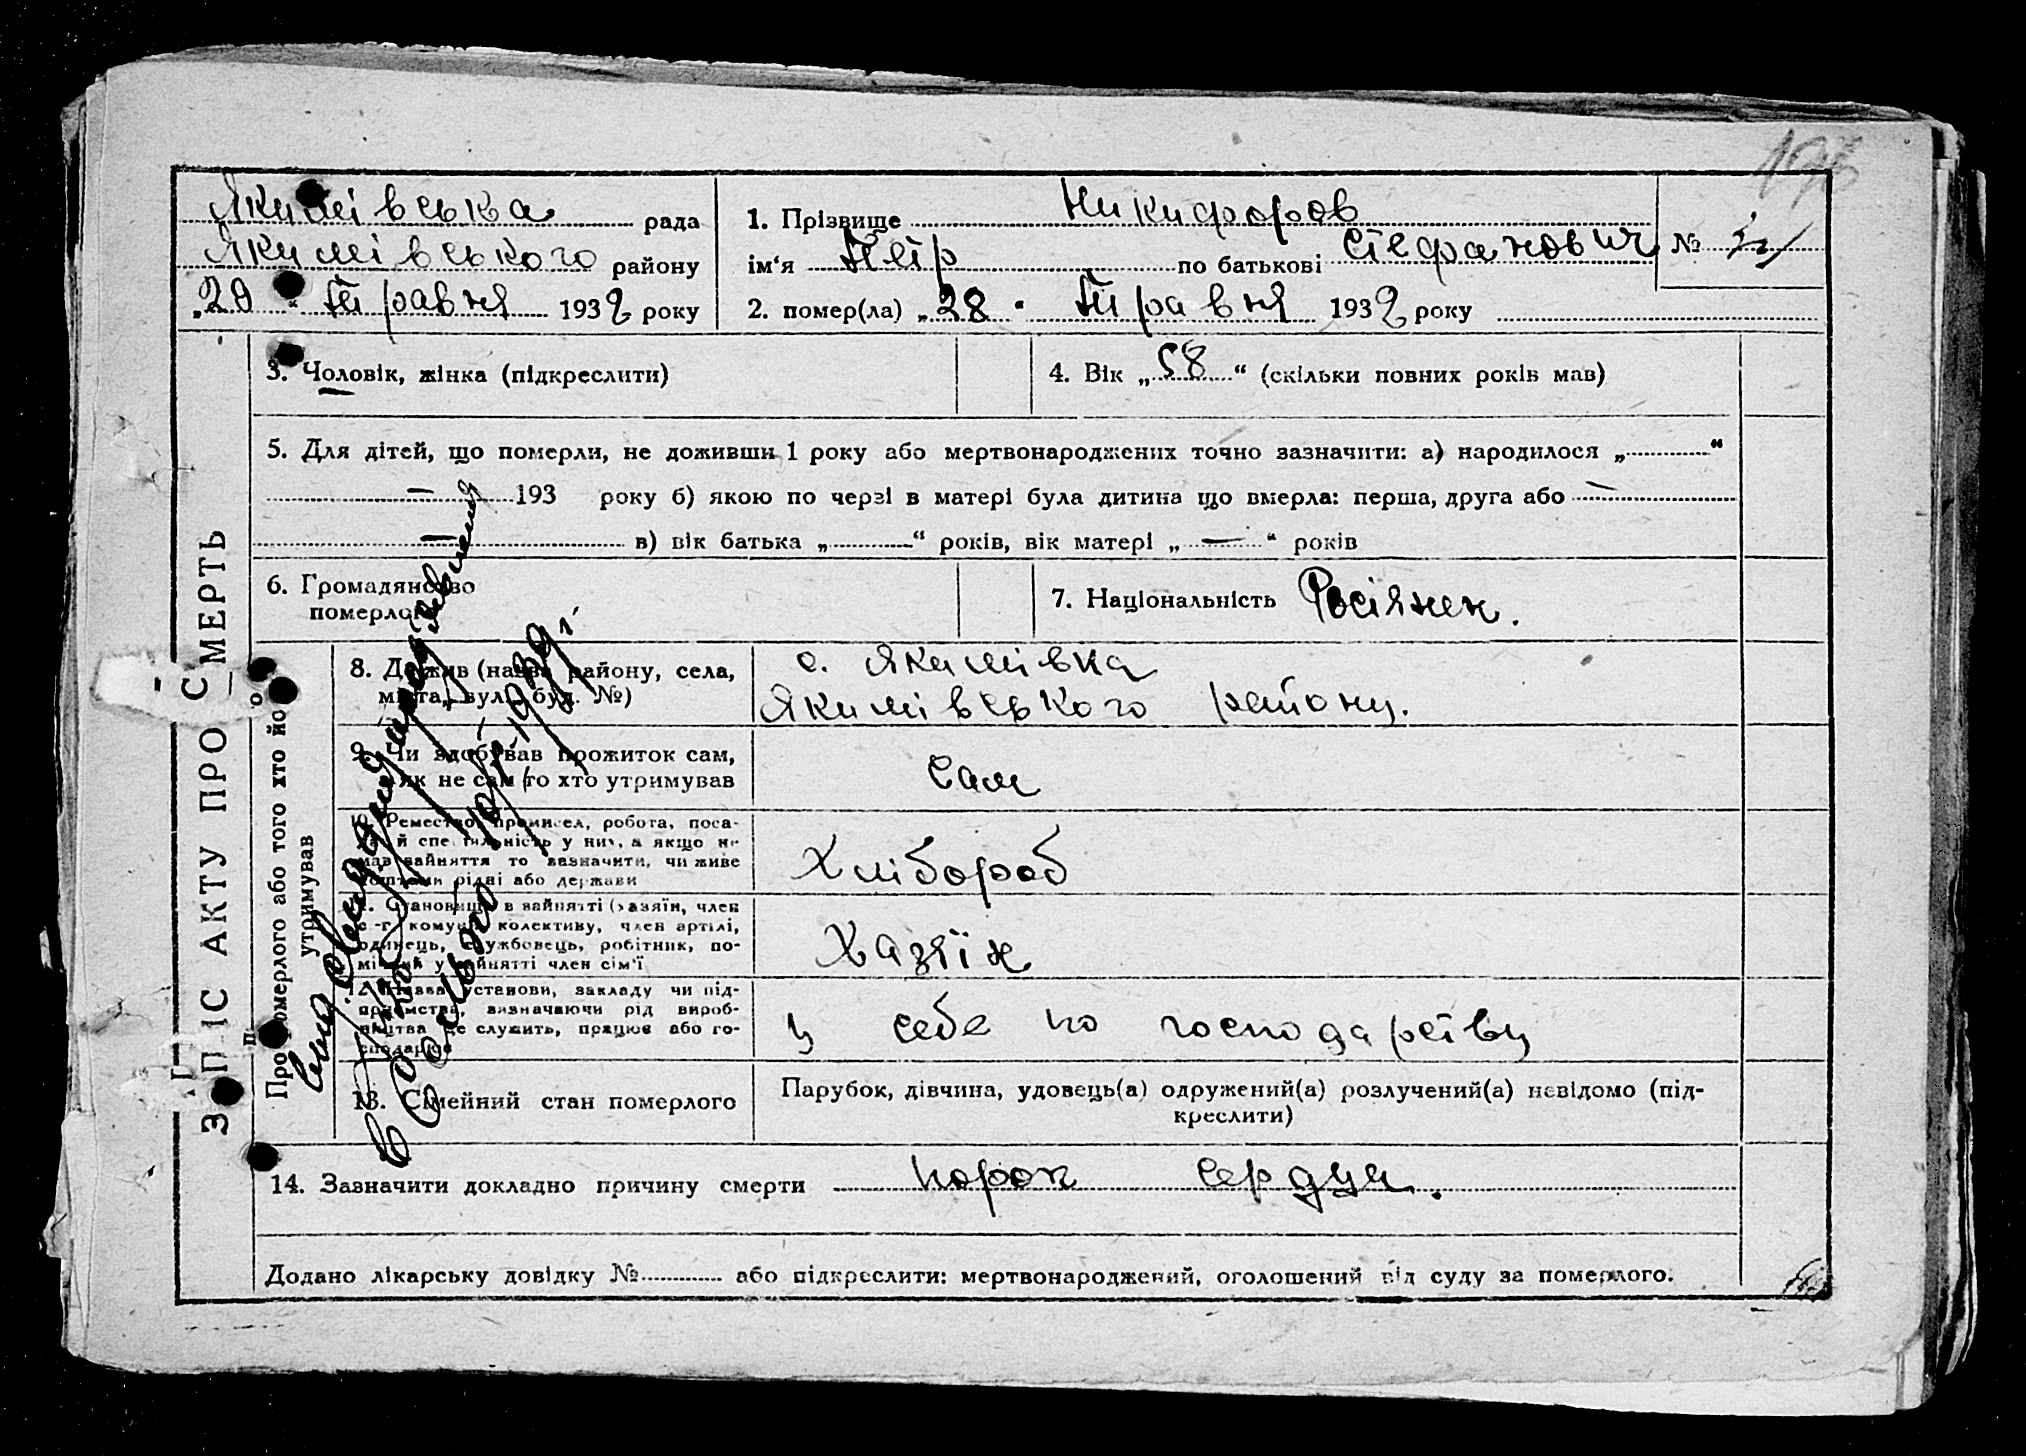 Якимівська рада
Якимівського району
„29 “ Травня 1932 року
1. Прізвище Никифоров
ім‘я Петр по батькові Стефанович №
2. помер(ла) „28 “ Травня 1932 року
ЗАПИС АКТУ ПРО СМЕРТЬ
3. Чоловік, жінка (підкреслити)
4. Вік „58“ (скільки повних років мав)
5. Для дітей, що померли, не доживши 1 року або мертвонароджених точно зазначити: а) народилося „ “
— 193 року б) якою по черзі в матері була дитина що вмерла: перша, друга або —
— в) вік батька „ “ років, вік матері „ — “ років
6. Громадянство
померлого
7. Національність Росіянен.
Про померлого або того хто його
утримував
8. Де жив (назва району, села,
міста, вул. буд. №)
с. Якимівка
Якимівського району.
9. Чи здобував прожиток сам,
а як не сам то хто утримував
Сам
10. Ремество, промисел, робота, поса-
да й спеціяльність у них, а якщо не
мав зайняття то зазначити, чи живе
коштами рідні або держави
Хлібороб
11. Становище в зайнятті (хазяїн, член
с.-г. комуни, колективу, член артілі,
одинець, службовець, робітник, по-
мічний у зайнятті член сім‘ї
Хазяїн
12. Назва установи, закладу чи під-
приємства, визначаючи рід вироб-
ництва де служить, працює або го-
сподарює
у себе по господарству
13. Сімейний стан померлого
Парубок, дівчина, удовець(а) одружений(а) розлучений(а) невідомо (під-
креслити)
14. Зазначити докладно причину смерти порок сердця.
Додано лікарську довідку № або підкреслити: мертвонароджений, оголошений від суду за померлого.